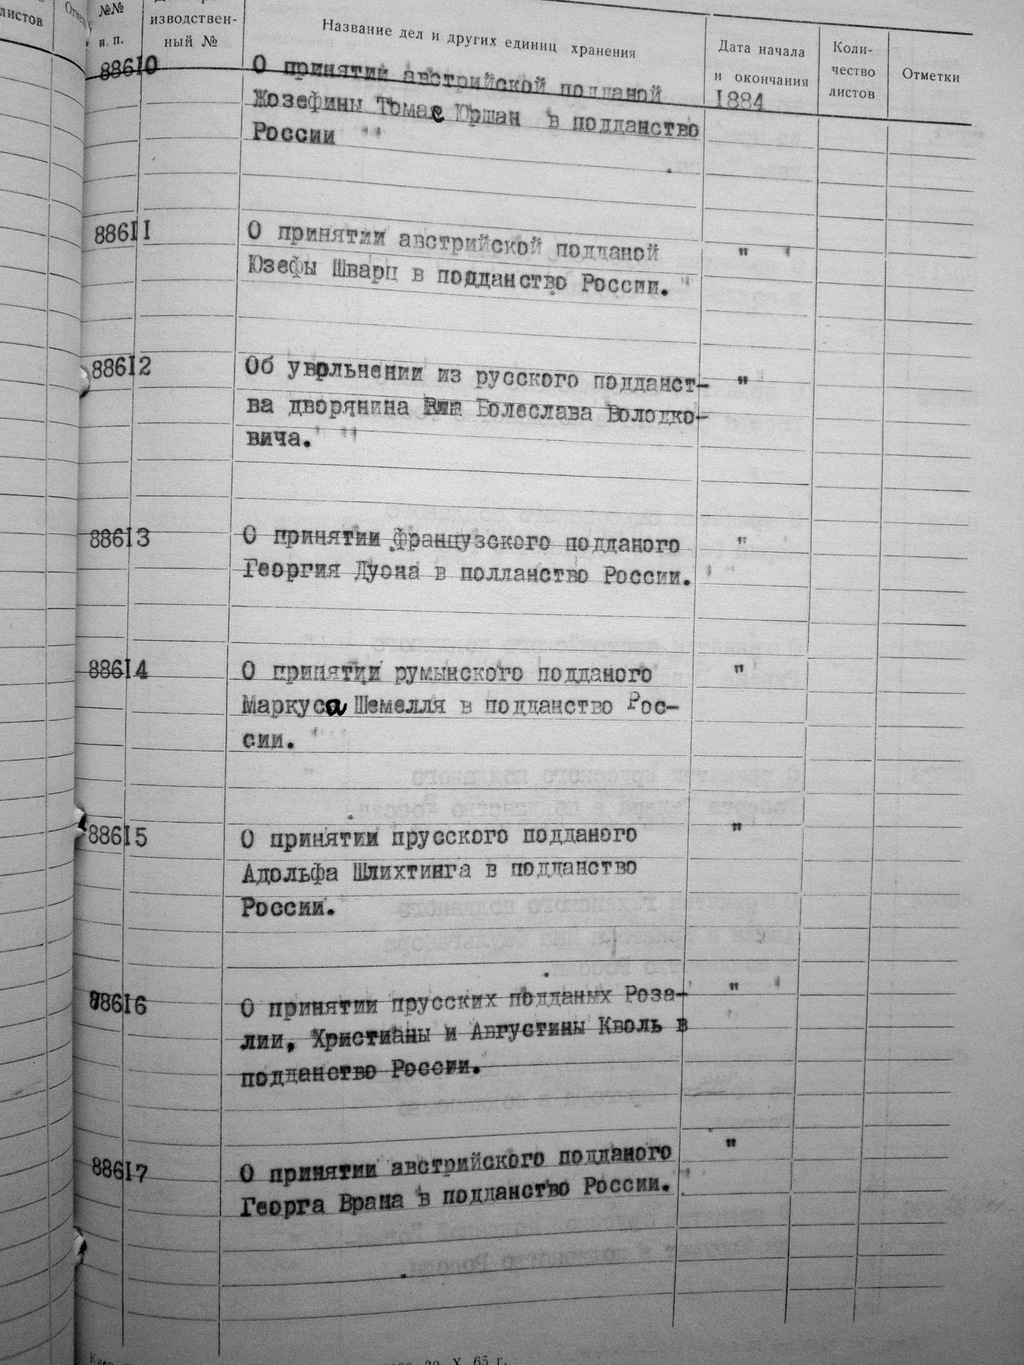 листов
№№
п. п.
изводствен-
ный №
Название дел и других единиц хранения
Дата начала
и окончания
Коли-
чество
листов
Отметки
88610
О принятии австрийской подданой
1884
Жозефины Томас Юршан в подданство
России
88611
О принятии австрийской подданой
"
Юзефы Шварц в подданство России.
88612
Об увольнении из русского подданст-
"
ва дворянина Болеслава Володко-
вича.
88613
О принятии французского подданого
"
Георгия Дуона в полланство России.
88614
О принятии румынского подданого
"
Маркуса Шемелля в подданство Рос-
сии.
88615
О принятии прусского подданого
"
Адольфа Шлихтинга в подданство
России.
88616
О принятии прусских подданых Роза-
"
лии, Христианы и Августины Кволь в
подданство России.
88617
О принятии австрийского подданого
"
Георга Врана в подданство России.
X 65 г.